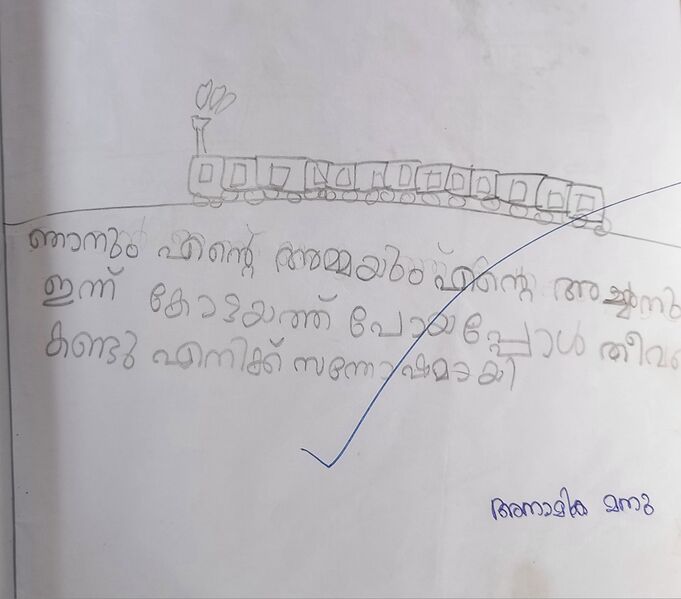 ഞാനും എൻ്റെ അമ്മയും എൻ്റെ അച്ഛനും
ഇന്ന് കോട്ടയത്ത് പോയപ്പോൾ
കണ്ടു എനിക്ക് സന്തോഷമായി
അനാമിക മനു